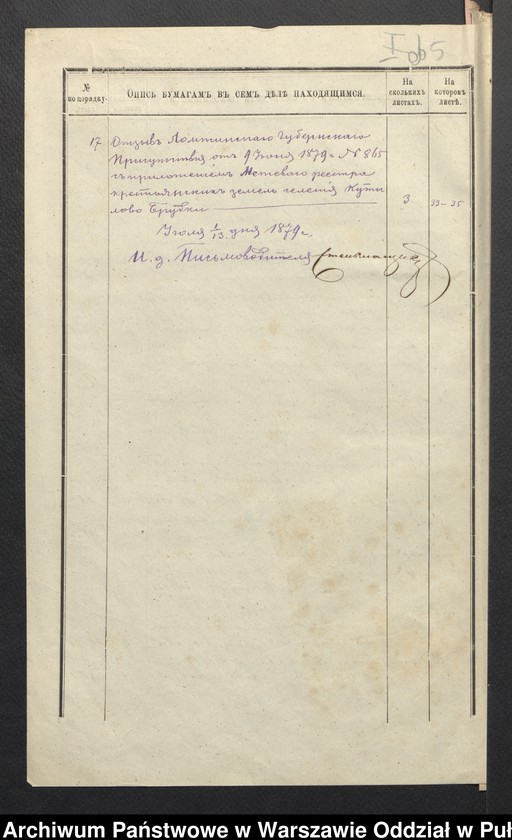 I ob 5
№ по порядку.
Опись бумагамъ въ семъ дѣлѣ находящимся.
На сколькихъ листахъ.
На которомъ листѣ.
17. Отзывъ Ломжинскаго Губернскаго
Присутствія отъ 9 Іюня 1879 г. № 865
съ приложеніемъ реестра
крестьянскихъ земель селенія Куты
лово Брудки 3. 33-35
Іюля 1/13 дня 1879 г.
И. д. Письмоводителя
Archiwum Państwowe w Warszawie Oddział w Puł